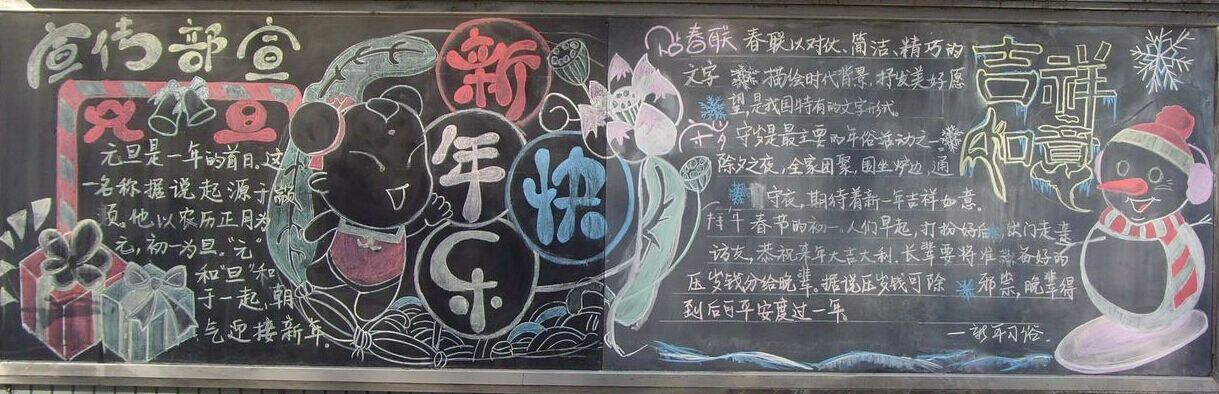 宣传部宣
元旦
元旦是一年的首日.这
一名称据说起源于颛
顼,他以农历正月为
元,初一为旦."元"
和"旦"和
于一起,朝
气迎接新年.
新年快乐
贴春联 春联以对仗、简洁、精巧的
文字 描绘时代背景,抒发美好愿
望,是我国特有的文学形式。
守岁 守岁是最主要的年俗活动之一,
除夕之夜,全家团聚,围坐炉边,通
守夜,期待着新一年吉祥如意.
拜年 春节的初一,人们早起,打扮好后 出门走亲
访友,恭祝来年大吉大利.长辈要将准备好的
压岁钱分给晚辈,据说压岁钱可除 邪祟,晚辈得
到后可平安度过一年。
一新年习俗.
吉祥
如意